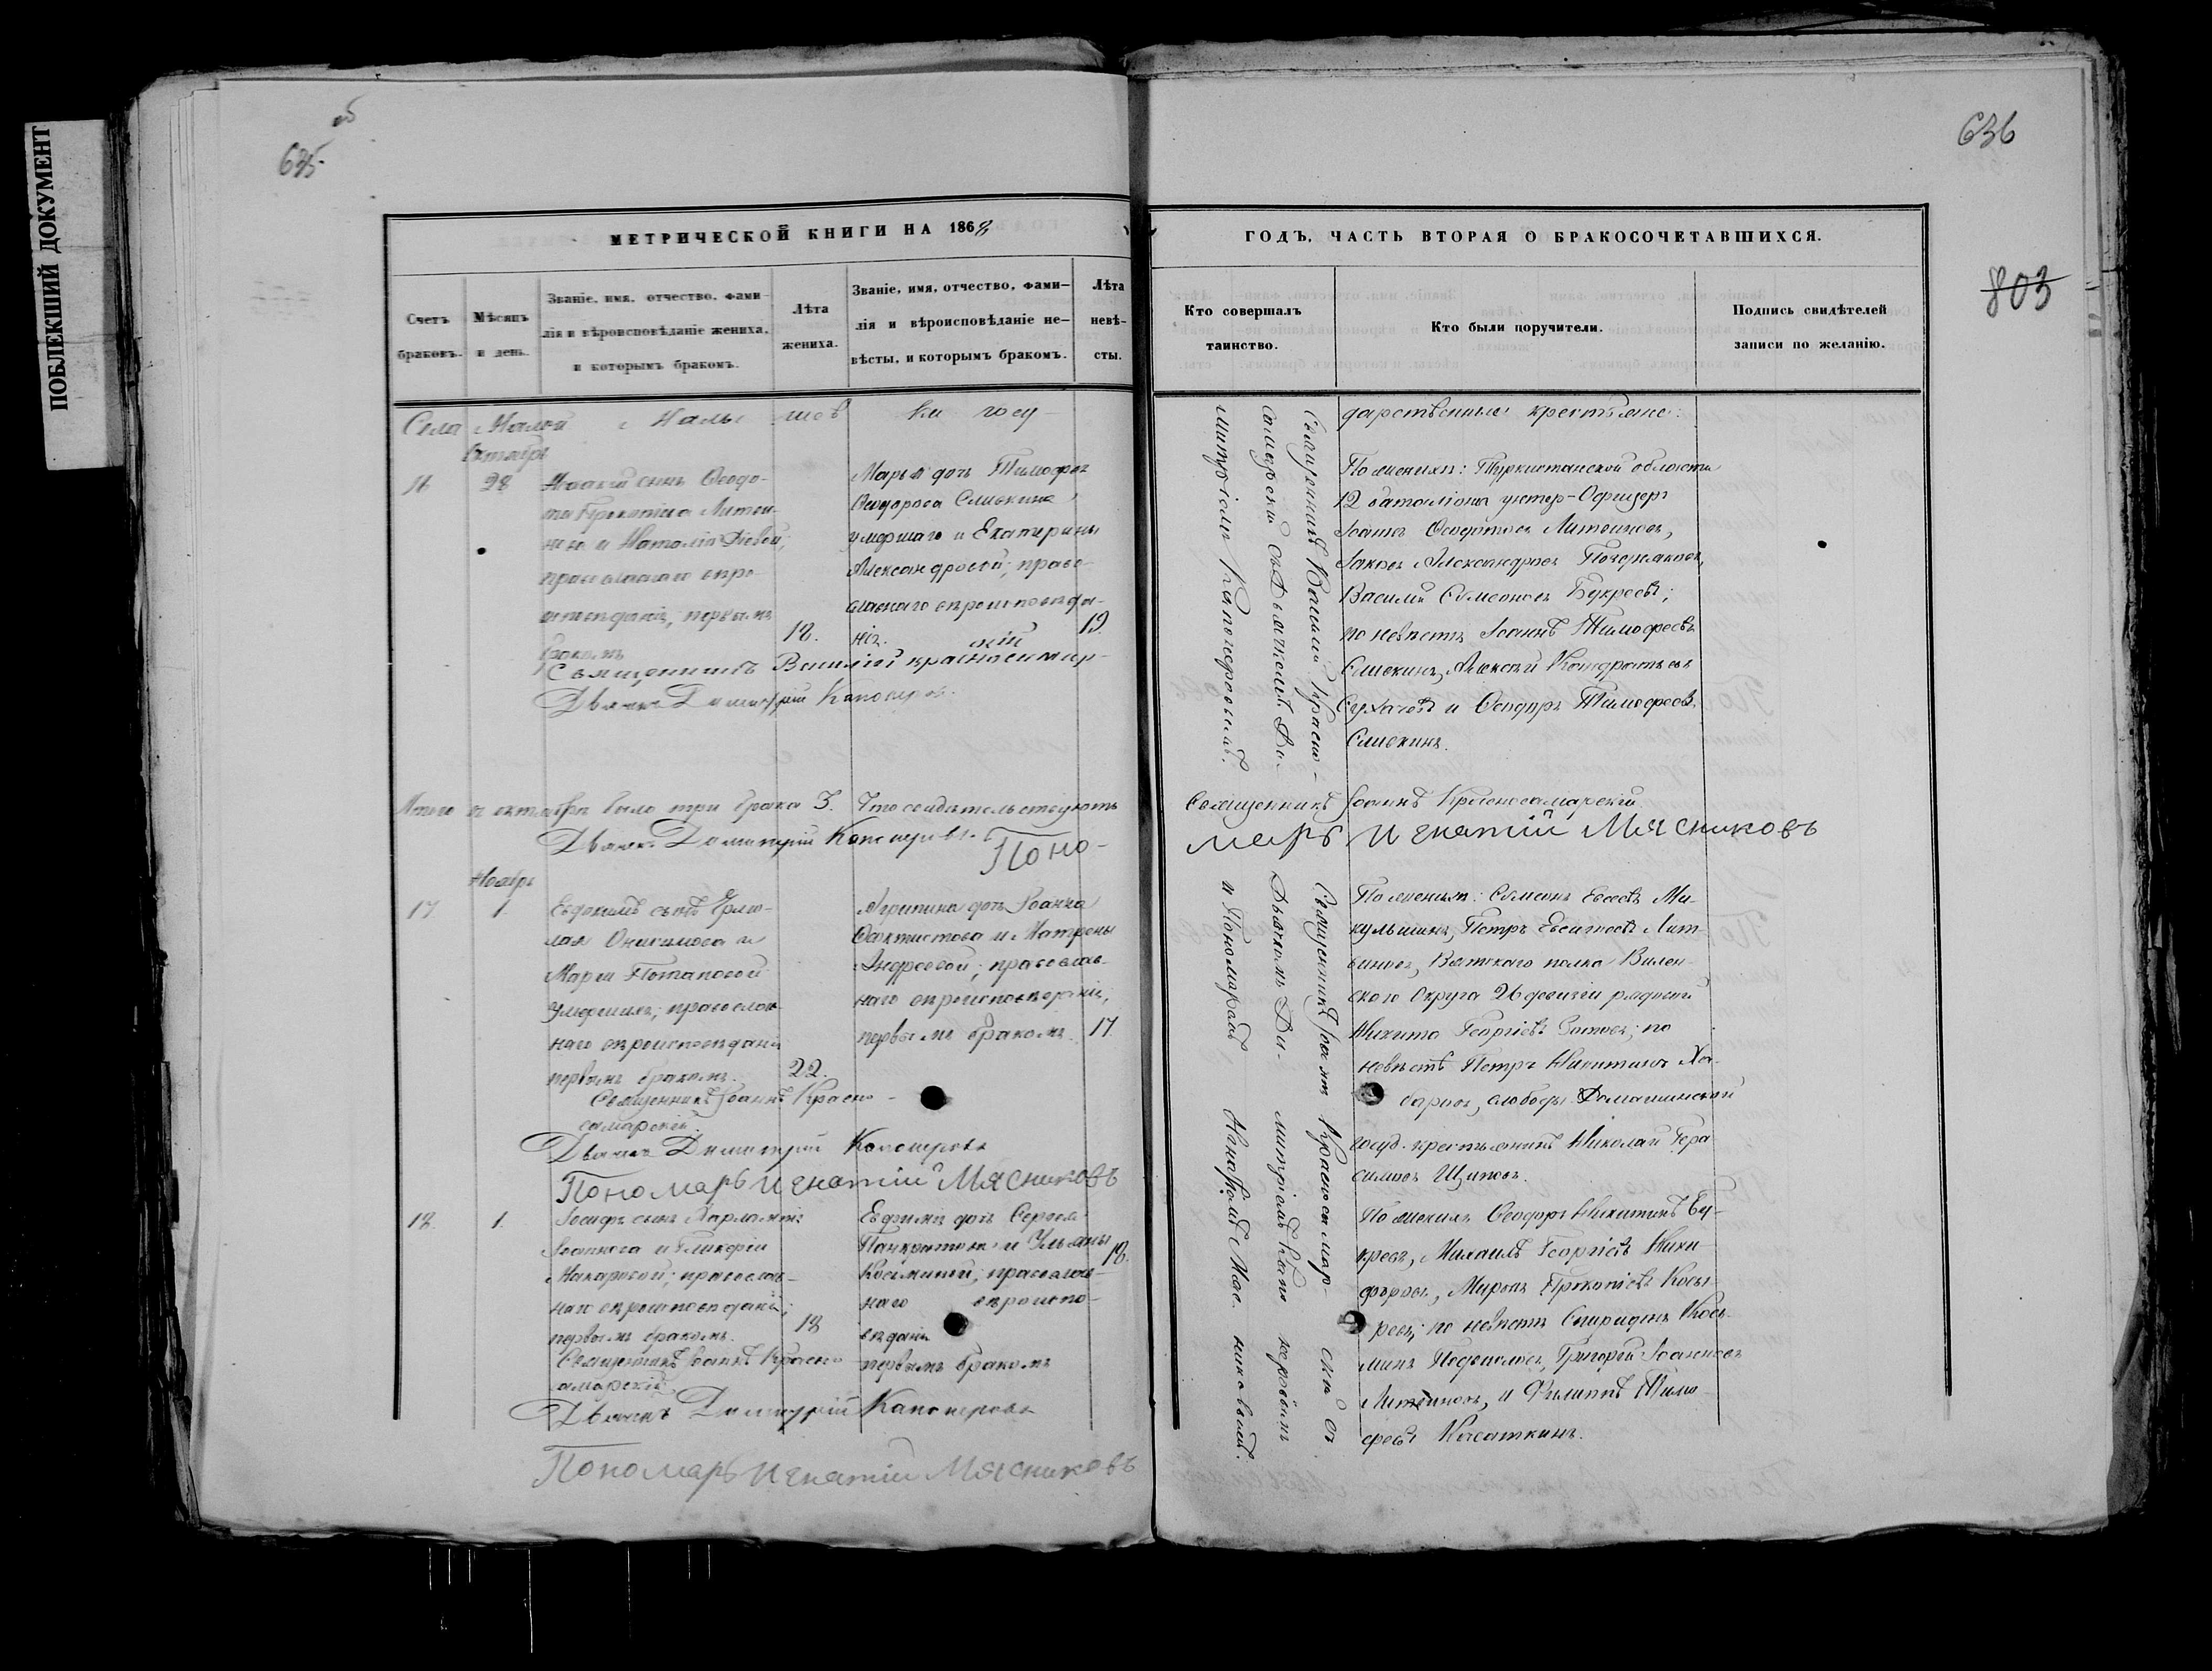 ПОБЛЕКШИЙ ДОКУМЕНТ
об
635
МЕТРИЧЕСКОЙ КНИГИ НА 1868
Счетъ браковъ.
Мѣсяцъ и день.
Званіе, имя, отчество, фами-
лія и вѣроисповѣданіе жениха,
и которымъ бракомъ.
Лѣта
жениха.
Званіе, имя, отчество, фами-
лія и вѣроисповѣданіе не-
вѣсты, и которымъ бракомъ.
Лѣта
невѣ-
сты.
Села Малой Малы шев ки госу-
Октябрь
16
28
Исаакій сынъ Ѳеодо-
та Прокопіева Литви-
нова и Наталіи
православнаго вѣро-
исповѣданія, первымъ
бракомъ
18.
Марья дочь Тимофея
Ѳеодорова Сливкина
умершаго и Екатерины
Александровой; право-
славнаго вѣроисповѣда-
нія.
19
Священникъ Василій Красносамар-
скій
Дьячекъ Димитрій Каноперовъ.
Итого въ октябрѣ было три брака 3. Что свидѣтельствуютъ
Дьячекъ Димитрій Каноперовъ
Поно-
Ноябрь
17
1.
Евдокимъ сынъ Ермо-
лая Онисимова и
Марѳи Потаповой
умершихъ; православ-
наго вѣроисповѣданія
первымъ бракомъ.
22.
Агрипина дочь Іоанна
Ѳеоктистова и Матрены
Андреевой; православ-
наго вѣроисповѣданія,
первымъ бракомъ.
17.
Священникъ Іоаннъ Красно-
самарскій.
Дьячекъ Димитрій Каноперовъ
Пономарь Игнатій Мясниковъ
18.
1.
Іосифъ сынъ Харлампія
Іоаннова и Гликеріи
Макаровой; православ-
наго вѣроисповѣданія;
первымъ бракомъ.
18
Евфимія дочь Сергея
Панкратова и Ульяны
Косьминой; православ-
наго вѣроиспо-
вѣданія
первымъ бракомъ
18.
Священникъ Іоаннъ Красно-
самарскій
Дьячекъ Димитрій Каноперовъ
Пономарь Игнатій Мясниковъ
636
803
ГОДЪ, ЧАСТЬ ВТОРАЯ О БРАКОСОЧЕТАВШИХСЯ.
Кто совершалъ
таинство.
Кто были поручители.
Подпись свидѣтелей
записи по желанію.
дарственные крестьяне:
Священникъ Василій Красно-
самарскій съ Дьячкомъ Ди-
митріемъ Каноперовымъ.
По женихѣ: Туркистанской области
12 баталіона унтер-Офицеръ
Іоаннъ Ѳеодотовъ Литвиновъ,
Іаковъ Александровъ
Василій Симеоновъ Букреевъ;
по невѣстѣ Іоаннъ Тимофеевъ
Сливкинъ, Алексѣй Кондратьевъ
Сухачевъ и Ѳеодоръ Тимофеевъ
Сливкинъ.
Священникъ Іоаннъ Красносамарскій
марь Игнатій Мясниковъ
Священникъ Іоаннъ Красносамар- скій съ
Дьячкомъ Ди- митріемъ Кано перовымъ
и Пономаремъ Мяс никовымъ.
По женихѣ: Симеонъ Евсеевъ Ми-
кульшинъ, Петръ Лит-
виновъ, Вятскаго полка Вилен-
скаго Округа 26 дивизіи рядовой
Никита Георгіевъ Зотовъ; по
невѣстѣ Петръ Никитинъ Ха-
баровъ, слободы Домашинской
госуд. крестьянинъ Николай Гера-
симовъ Щуповъ.
По женихѣ Ѳеодоръ Никитинъ Бу-
креевъ, Михаилъ Георгіевъ Ники-
форовъ, Миронъ Прокопіевъ Косы-
ревъ; по невѣстѣ Спиридонъ Кось-
минъ Григорій Іоанновъ
Литвиновъ, и Филиппъ Тимо-
феевъ Касаткинъ.